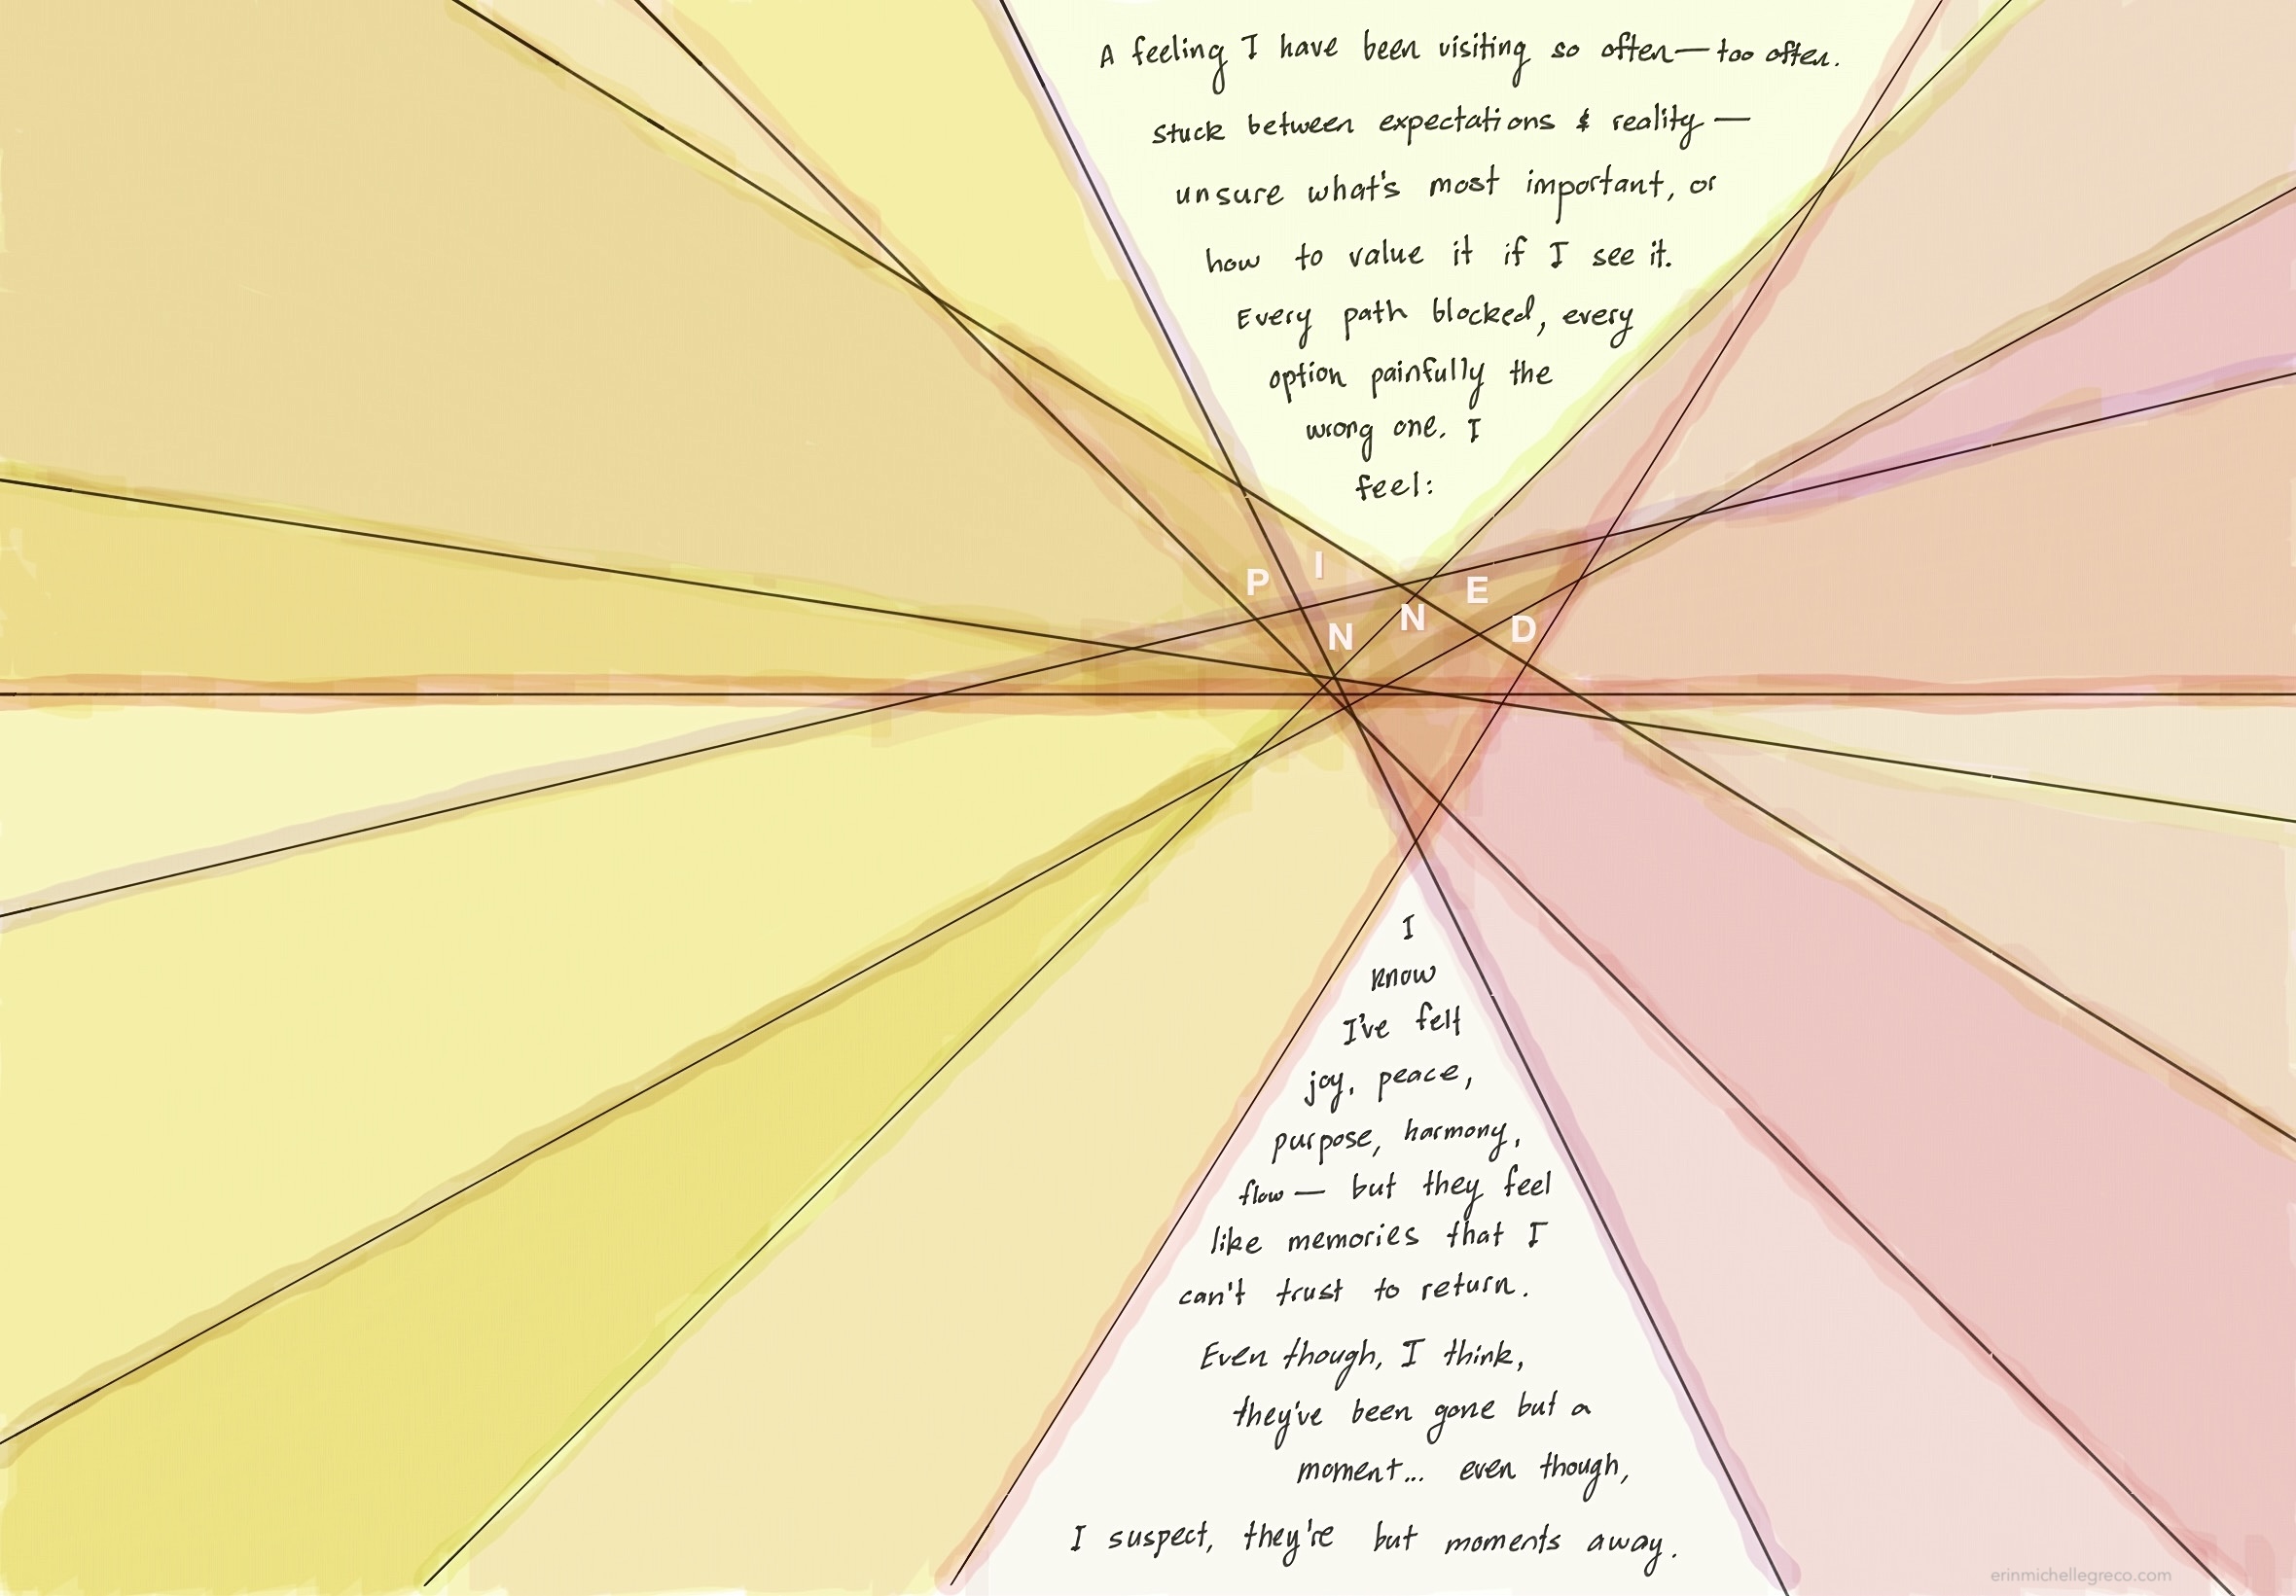 A feeling I have been visiting so often — too often.
stuck between expectations & reality —
unsure what's most important, or
how to value it if I see it.
Every path blocked, every
option painfully the
wrong one. I
feel:
PINNED
I
know
I've felt
joy, peace,
purpose, harmony,
flow — but they feel
like memories that I
can't trust to return.
Even though, I think,
they've been gone but a
moment... even though,
I suspect, they're but moments away.
erinmichellegreco.com